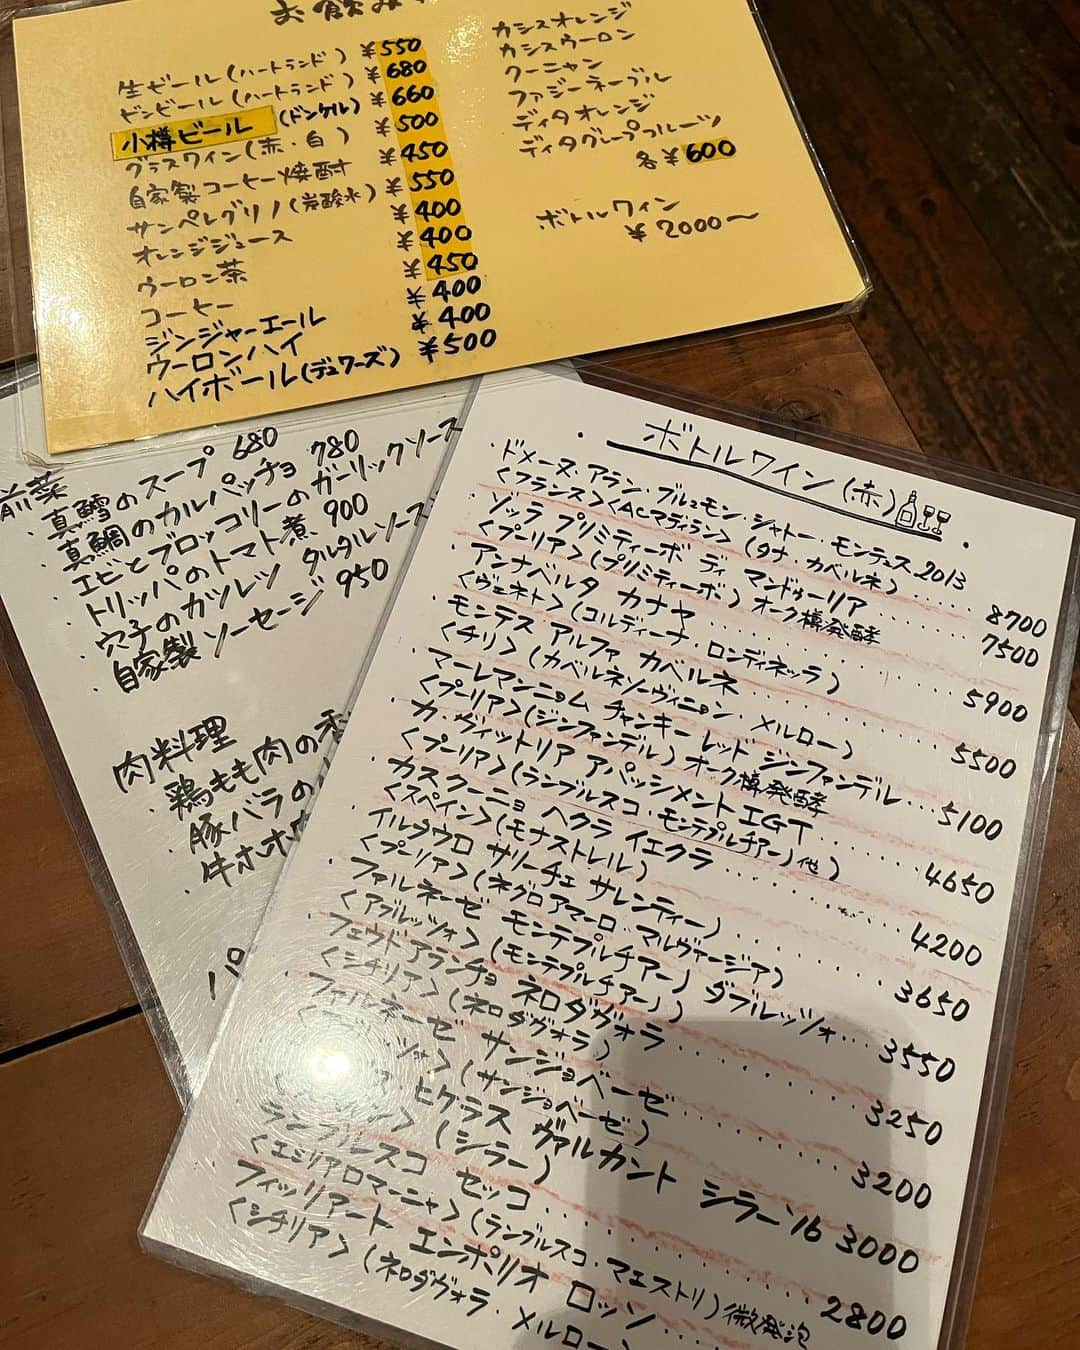 お飲み
生ビール(ハートランド) ¥550
ビンビール(ハートランド) ¥680
小樽ビール (ドンケル) ¥660
グラスワイン(赤・白) ¥500
自家製コーヒー焼酎 ¥450
サンペレグリノ(炭酸水) ¥550
オレンジジュース ¥400
ウーロン茶 ¥400
コーヒー ¥450
ジンジャーエール ¥400
ウーロンハイ ¥400
ハイボール(デュワーズ) ¥500
カシスオレンジ
カシスウーロン
クーニャン
ファジーネーブル
ディタオレンジ
ディタグレープフルーツ
各¥600
ボトルワイン
¥2000〜
前菜
・真鱈のスープ 680
・真鯛のカルパッチョ 780
・エビとブロッコリーのガーリックソース
・トリッパのトマト煮 900
・穴子のカツレツ タルタルソース
・自家製ソーセージ 950
肉料理
・鶏もも肉の香
・豚バラの
・牛ホホ肉
パ
・ボトルワイン(赤)・
・ドメーヌ・アラン・ブルュモン・シャトー・モンテュス2013 ..... 8700
<フランス><ACマディラン>(タナ・カベルネ)
・ゾッラ プリミティーボ ディ マンドゥーリア ....... 7500
<プーリア>(プリミティーボ) オーク樽発酵
・アンナベルタ カナヤ ............ 5900
<ヴェネト>(コルディーナ・ロンディネッラ)
・モンテス アルファ カベルネ .......... 5500
<チリ>(カベルネソーヴィニョン・メルロー)
・マーレマンニョム チャンキー レッド ジンファンデル ... 5100
<プーリア>(ジンファンデル) オーク樽発酵
・カ・ヴィットリア アパッシメント IGT ....... 4650
<プーリア>(ランブルスコ・モンテプルチアーノ他)
・カスクーニョ ヘクラ イエクラ .......... 4200
<スペイン>(モナストレル)
・イルタウロ サリーチェ サレンティーノ ........ 3650
<プーリア>(ネグロアマーロ・マルヴァージア)
・ファルネーゼ モンテプルチアーノ ダブルッツォ ... 3550
<アブルッツォ>(モンテプルチアーノ)
・フェウドアランチョ ネロダヴォラ ........ 3250
<シチリア>(ネロダヴォラ)
・ファルネーゼ サンジョベーゼ ........ 3200
ッツォ>(サンジョベーゼ)
ヒグラス ヴァルカント シラー'16 3000
>(シラー)
・ランブルスコ セッコ .......... 2800
<エミリアロマーニャ>(ランブルスコ・マエストリ) 微発泡
・フィッリアート エンポリオ ロッソ ....
<シチリア>(ネロダヴォラ・メルロー)